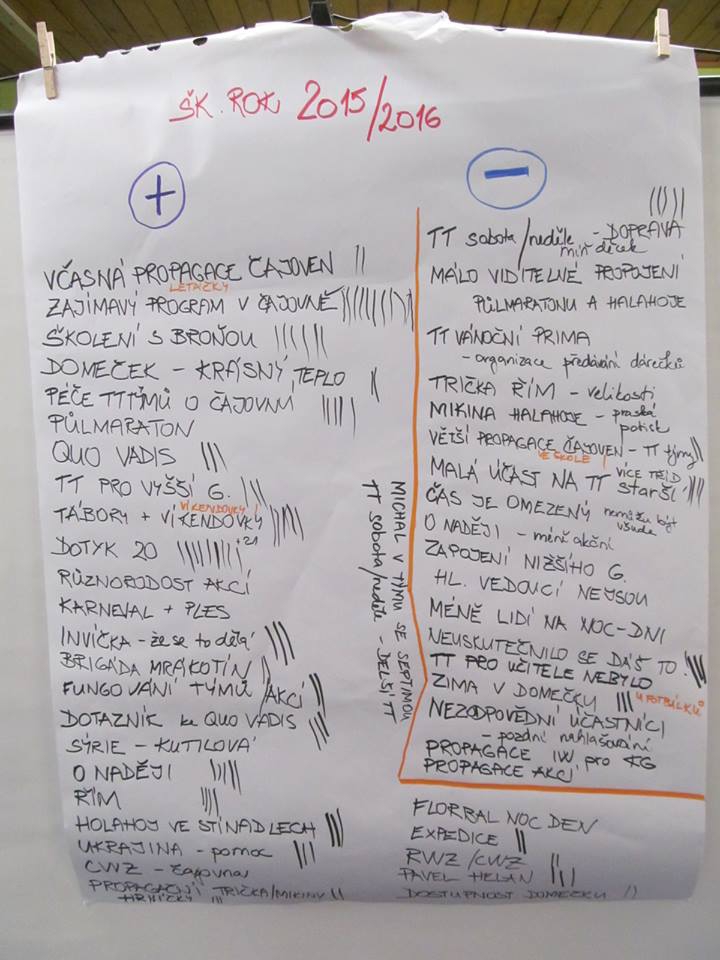 ŠK. ROK 2015/2016
+
VČASNÁ PROPAGACE ČAJOVEN
LETÁČKY
ZAJÍMAVÝ PROGRAM V ČAJOVNĚ
ŠKOLENÍ S BROŇOU
DOMEČEK - KRÁSNÝ, TEPLO
PÉČE TT TÝMŮ O ČAJOVNÍ
PŮLMARATON
QUO VADIS
TT PRO VYŠŠÍ G.
VÍKENDOVKY!
TÁBORY + VÍKENDOVKY
DOTYK 20 +21
RŮZNORODOST AKCÍ
KARNEVAL + PLES
INVÍČKA - že se to dělá
BRIGÁDA MRÁKOTÍN
FUNGOVÁNÍ TÝMŮ /AKCÍ
DOTAZNÍK ke QUO VADIS
SÝRIE - KUTILOVÁ
O NADĚJI
ŘÍM
HOLAHOJ VE STÍNADLECH
UKRAJINA - pomoc
CVVZ - čajovna
PROPAGAČNÍ TRIČKA/MIKINY
HRNÍČKY
MICHAL V TÝMU SE SEPTIMOU
TT sobota/neděle - DELŠÍ TT
-
TT sobota/neděle - DOPRAVA
míň děcek
MÁLO VIDITELNÉ PROPOJENÍ
PŮLMARATONU A HALAHOJE
TT VÁNOČNÍ PRIMA
- organizace předávání dárečků
TRIČKA ŘÍM - velikosti
MIKINA HALAHOJE - praská
potisk
VĚTŠÍ PROPAGACE ČAJOVEN - TT týmy
VE ŠKOLE!
MALÁ ÚČAST NA TT VÍCE TŘÍD
STARŠÍ
ČAS JE OMEZENÝ nemůžu být
všude
O NADĚJI - méně akční
ZAPOJENÍ NIŽŠÍHO G.
HL. VEDOUCÍ NEJSOU
MÉNĚ LIDÍ NA NOC-DNI
NEUSKUTEČNILO SE DÁŠ TO!
TT PRO UČITELE NEBYLO
ZIMA V DOMEČKU U FOTBÁLKŮ
NEZODPOVĚDNÍ ÚČASTNÍCI
- pozdní nahlašování
PROPAGACE IW pro KG
PROPAGACE AKCÍ
FLORBAL NOC DEN
EXPEDICE
RVVZ/CVVZ
PAVEL HELAN
DOSTUPNOST DOMEČKU